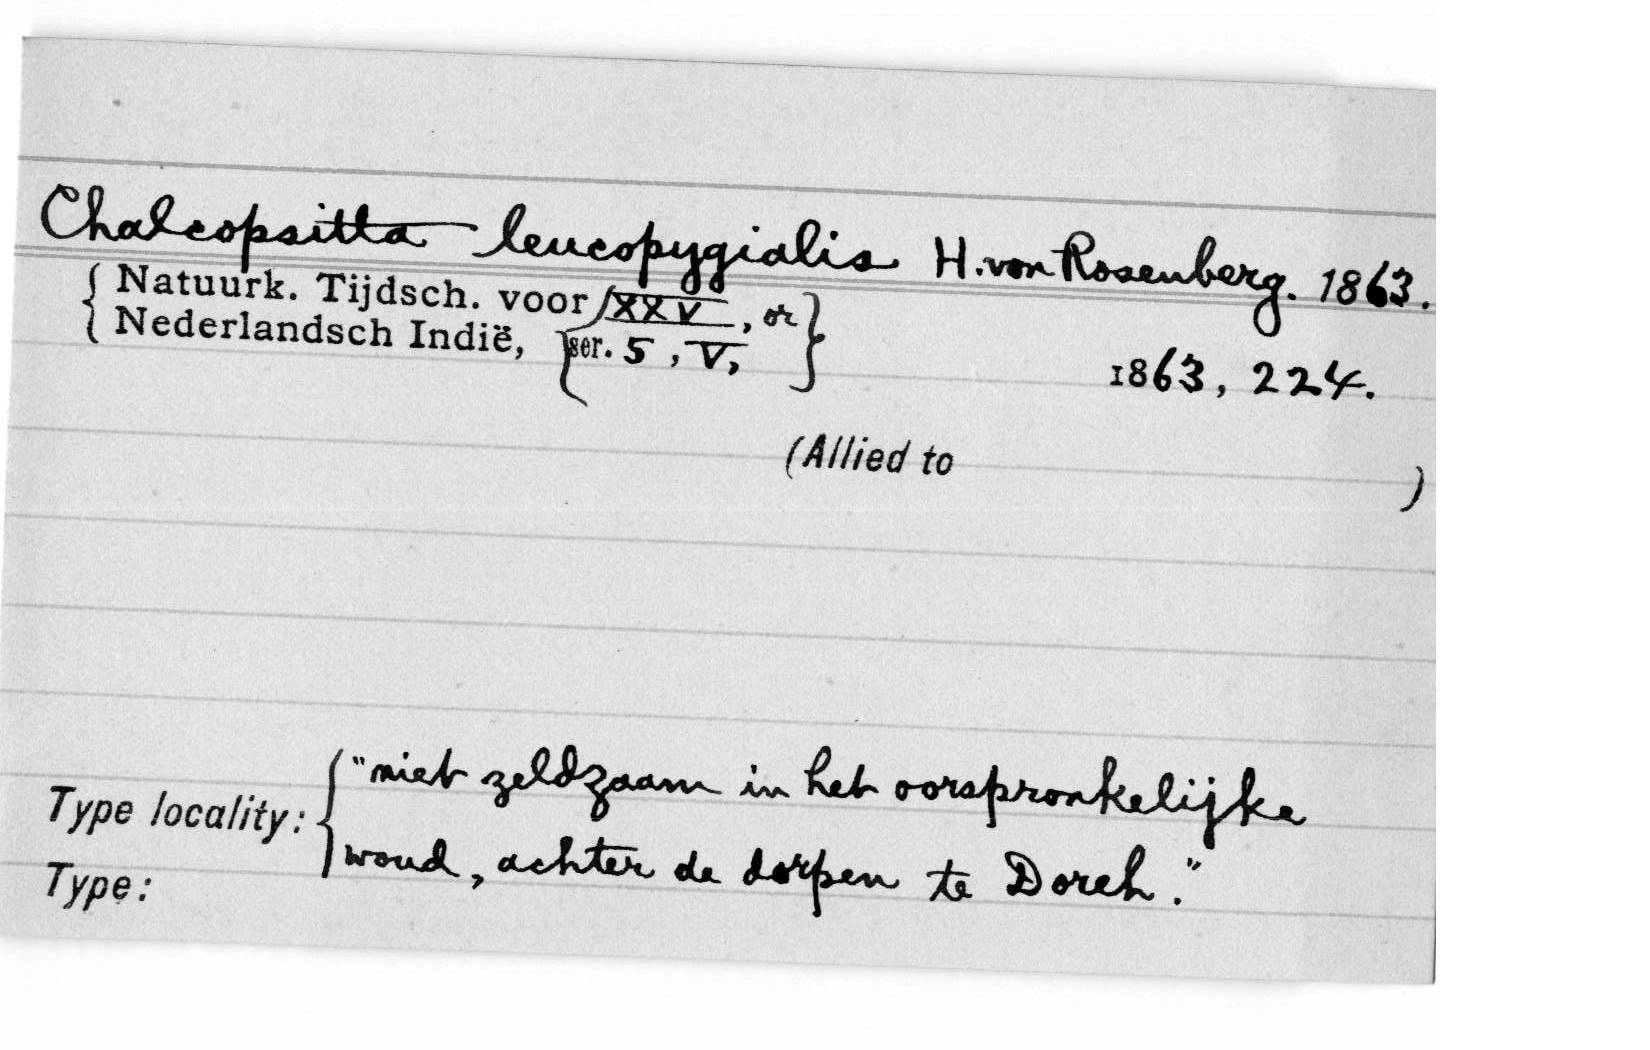 Chalcopsitta leucopygialis H. von Rosenberg. 1863.
{ Natuurk. Tijdsch. voor { XXV, or }
{ Nederlandsch Indië, { ser. 5, V, } 1863, 224.
(Allied to )
Type locality: { "niet zeldzaam in het oorspronkelijke
woud, achter de dorpen te Doreh."
Type: